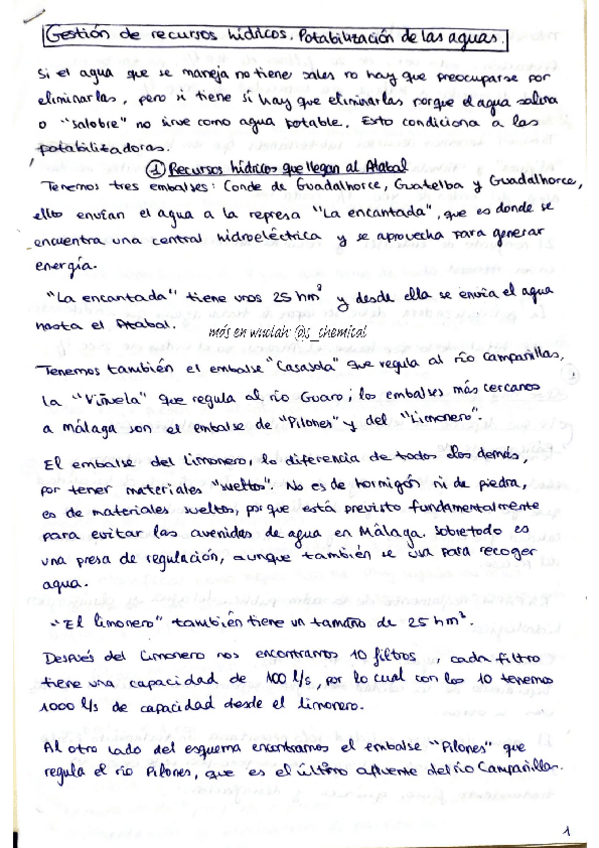 Gestión de recursos hídricos. Potabilización de las aguas.
Si el agua que se maneja no tiene sales no hay que preocuparse por
eliminarlas, pero si tiene sí hay que eliminarlas porque el agua salina
o "salobre" no sirve como agua potable. Esto condiciona a las
potabilizadoras.
① Recursos hídricos que llegan al Atabal
Tenemos tres embalses: Conde de Guadalhorce, Guatelba y Guadalhorce,
ellos envían el agua a la represa "La encantada", que es donde se
encuentra una central hidroeléctrica y se aprovecha para generar
energía.
"La encantada" tiene unos 25 hm³ y desde ella se envía el agua
hasta el Atabal.
más en wuolah: @s_chemical
Tenemos también el embalse "Casasola" que regula al río Campanillas,
la "Viñuela" que regula al río Guaro; los embalses más cercanos
a málaga son el embalse de "Pilones" y del "Limonero".
El embalse del Limonero, lo diferencia de todos los demás,
por tener materiales "sueltos". No es de hormigón ni de piedra,
es de materiales sueltos, porque está previsto fundamentalmente
para evitar las avenidas de agua en Málaga. Sobretodo es
una presa de regulación, aunque también se usa para recoger
agua.
"El limonero" también tiene un tamaño de 25 hm³.
Después del Limonero nos encontramos 10 filtros, cada filtro
tiene una capacidad de 100 l/s, por lo cual con los 10 tenemos
1000 l/s de capacidad desde el limonero.
Al otro lado del esquema encontramos el embalse "Pilones" que
regula el río Pilones, que es el último afluente del río Campanillas.
1